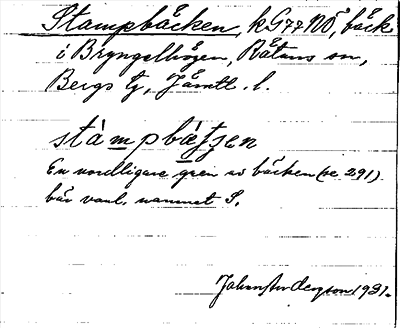 Stampbäcken, kG77NÖ, bäck
i Bryngelhögen, Råtans sn,
Bergs tg, Jämtl. l.
stàmpbætjen
En nordligare gren av bäcken (se 291)
bär vanl. namnet S.
Johan Anderson 1931.